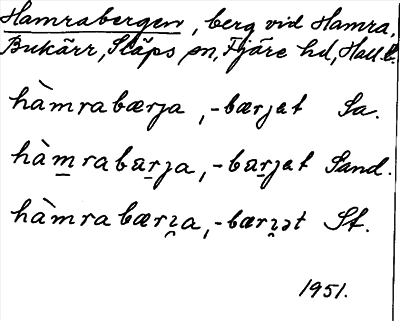 Hamrabergen, berg vid Hamra,
Bukärr, Släps sn, Fjäre hd, Hall. l.
hàmrabærɟa, -bærɟet Sa.
hàm̱raba̱ṟɟa, -ba̱ṟɟat Sand.
hàmrabæri̯a, -bæri̯ət St.
1951.